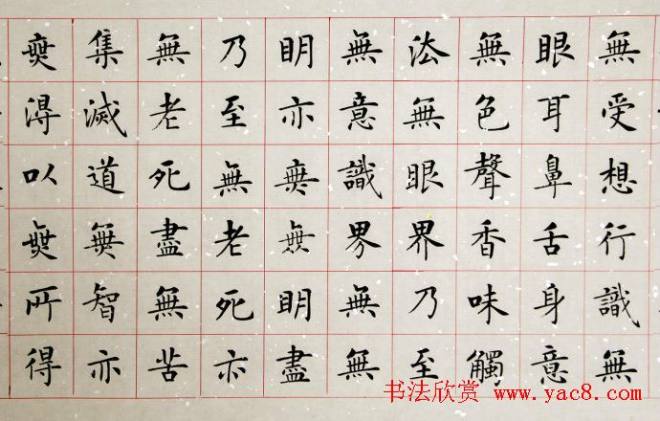 無受想行識無
眼耳鼻舌身意
無色聲香味觸
法無眼界乃至
無意識界無無
明亦無無明盡
乃至無老死亦
無老死盡無苦
集滅道無智亦
無得以無所得
书法欣赏
www.yac8.com